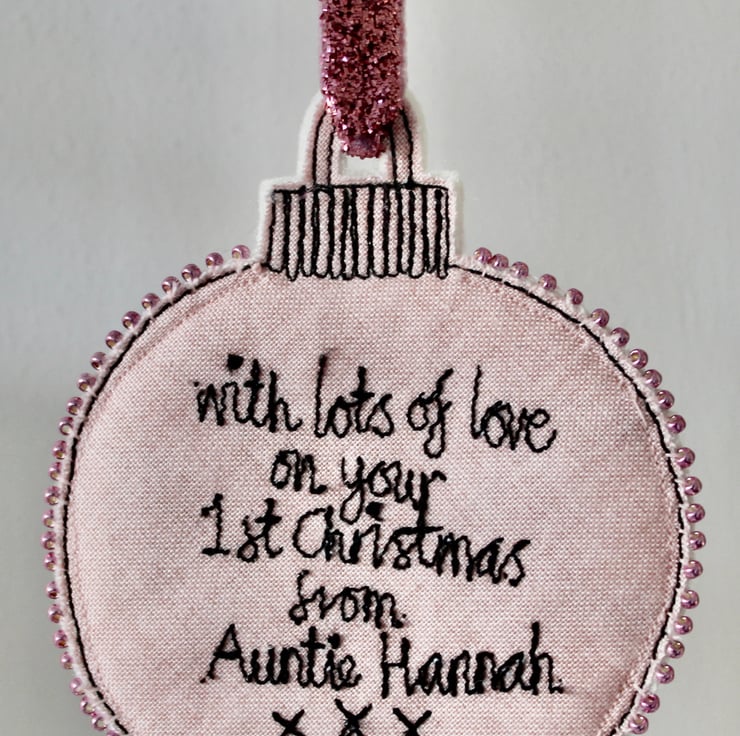 with lots of love
on your
1st Christmas
from
Auntie Hannah.
x x x